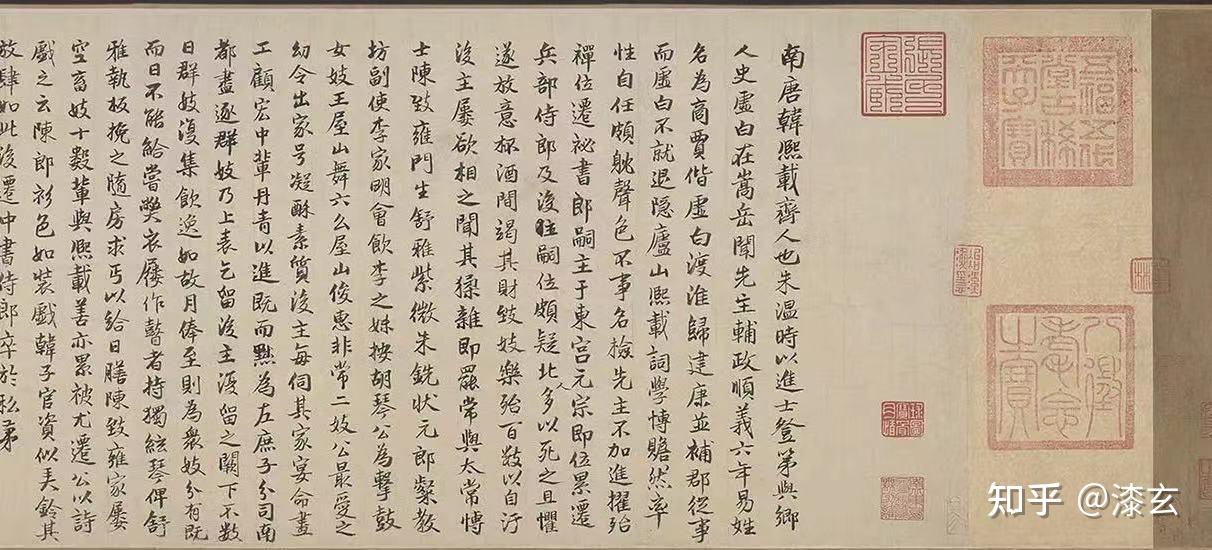 南唐韓熙載齊人也朱溫時以進士登第與鄉
人史虛白在嵩岳聞先主輔政順義六年易姓
名為商賈偕虛白渡淮歸建康並補郡從事
而虛白不就退隱廬山熙載詞學博贍然率
性自任頗躭聲色不事名檢先主不加進擢殆
禪位遷祕書郎嗣主于東宮元宗即位累遷
兵部侍郎及後主嗣位頗疑北人多以死之且懼
遂放意杯酒間竭其財致妓樂殆百數以自汙
後主屢欲相之聞其猱雜即罷常與太常博
士陳致雍門生舒雅紫微朱銑狀元郎粲教
坊副使李家明會飲李之妹按胡琴公為擊鼓
女妓王屋山舞六么屋山俊惠非常二妓公最愛之
幼令出家号凝酥素質後主每伺其家宴命畫
工顧宏中輩丹青以進既而黜為左庶子分司南
都盡逐群妓乃上表乞留後主復留之闕下不數
日群妓復集飲逸如故月俸至則為衆妓分有既
而日不能給嘗弊衣屨作瞽者持獨絃琴俾舒
雅執板挽之隨房求丐以給日膳陳致雍家屢
空畜妓十數輩與熙載善亦累被尤遷公以詩
戲之云陳郎衫色如装戲韓子官資似美鈴其
放肆如此後遷中書侍郎卒於私第
五福五代堂古稀天子寶
八徵耄念之寶
知乎 @漆玄